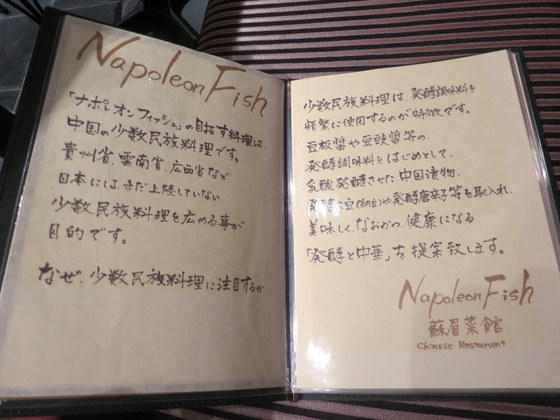 Napoleon Fish
「ナポレオンフィッシュ」の目指す料理は、
中国の少数民族料理です。
貴州省、雲南省、広西省など
日本には、まだ上陸していない
少数民族料理を広める事が
目的です。
なぜ、少数民族料理に注目するか
少数民族料理は、発酵調味料を
頻繁に使用するのが特徴です。
豆板醤や豆豉醤等の、
発酵調味料をはじめとして、
乳酸発酵させた中国漬物、
発酵大豆や発酵唐辛子等を取入れ、
美味しく、なおかつ、健康になる
「発酵と中華」を提案致します。
Napoleon Fish
蘇眉菜館
Chinese Restaurant